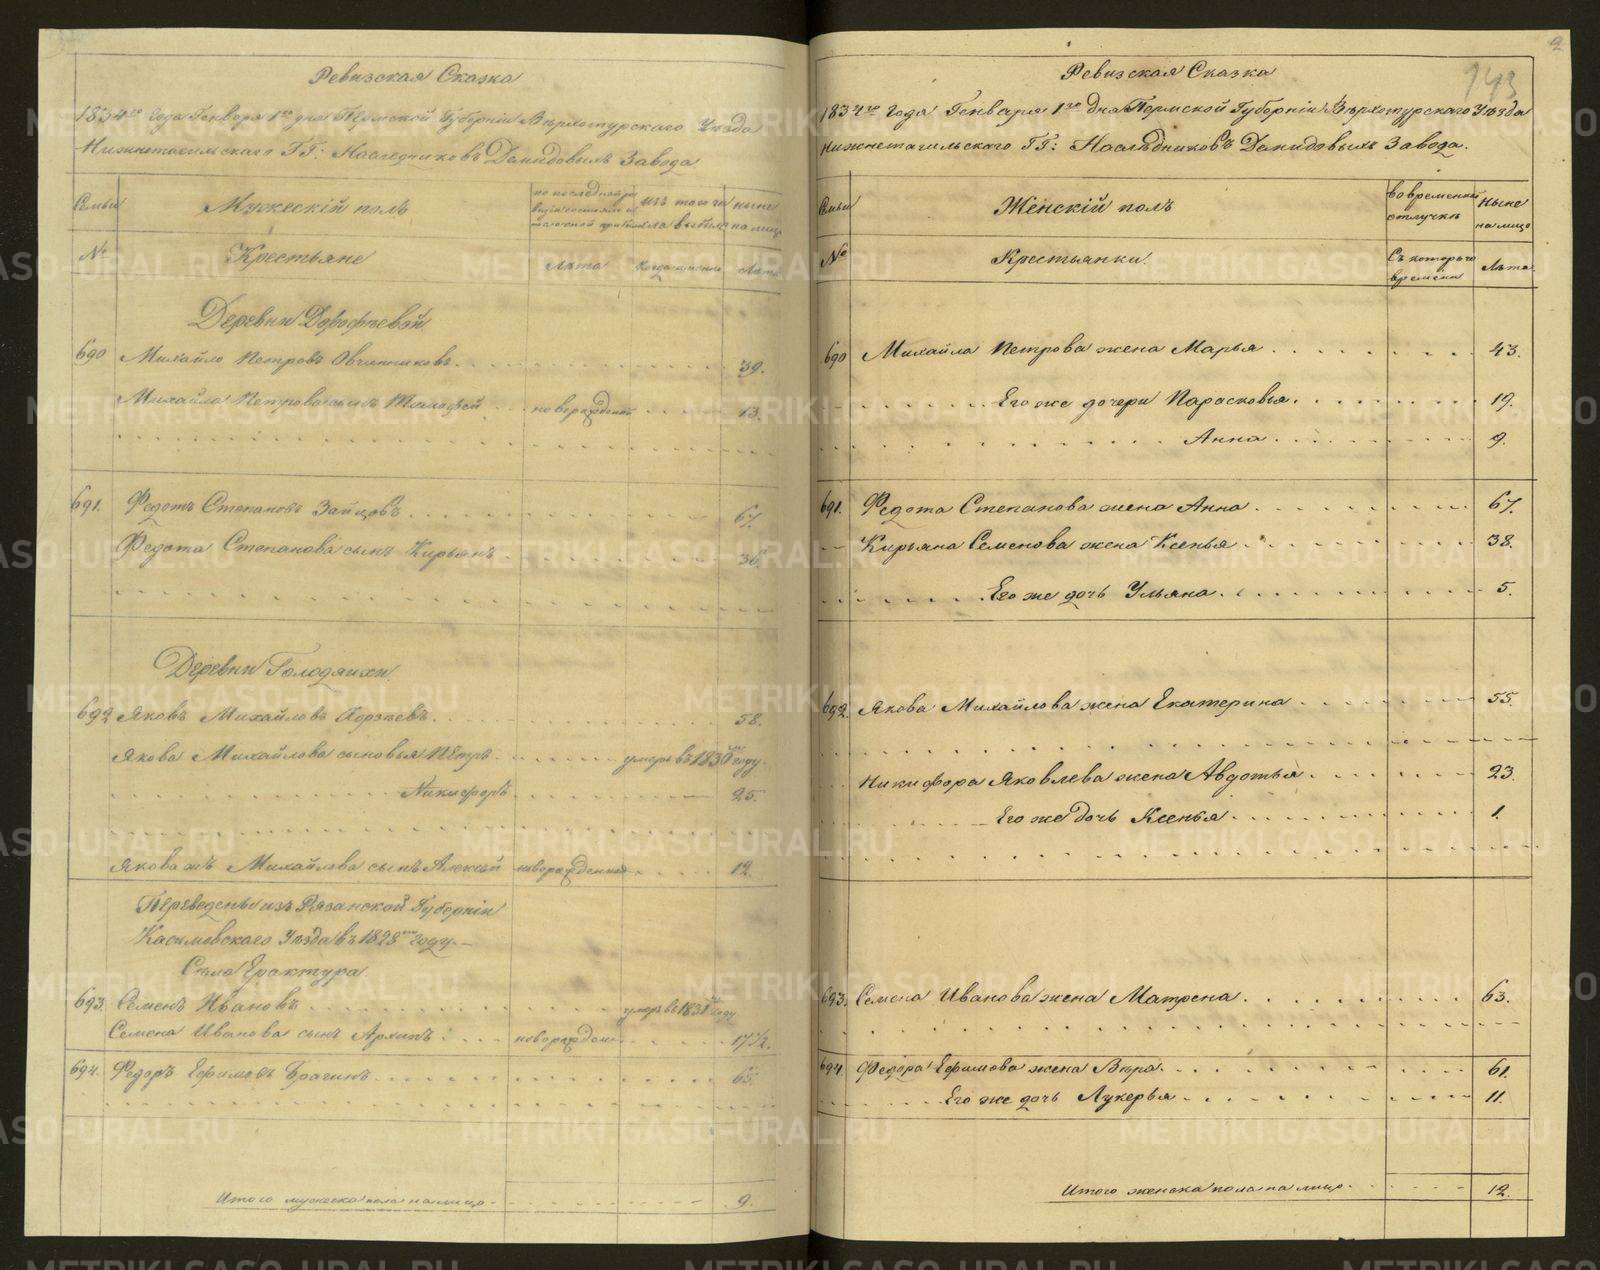 Ревизская Сказка
1834го года Генваря 1го дня Пермской Губерніи Верхотурскаго Уѣзда
Нижнетагильскаго ГГ: Наследниковъ Демидовыхъ Завода
Семьи
Мужескій полъ
по последней ре
визіи состояло и
после оной прибыло
изъ того чи
сла выбыло
ныне
на лицо
№
Крестьяне
Лѣта
Когда именно
Лѣта
Деревни Дорофѣевой
690 Михайло Петровъ Овчинниковъ 39.
Михайла Петрова сынъ Тимофей новорожденой 13.
691. Федотъ Степановъ Зайцовъ 67.
Федота Степанова сынъ Кирьянъ 36.
Деревни Голодяихи
692 Яковъ Михайловъ 58.
Якова Михайлова сыновья Петръ умеръ въ году
Никифоръ 25.
Якова жъ Михайлова сынъ Алексѣй новорожденной 12.
Переведены изъ Рязанской Губерніи
Касимовскаго Уѣзда въ 1828мъ году
Села Ерахтура
693. Семенъ Ивановъ умеръ въ 1831м году
Семена Иванова сынъ Архипъ новорожден 17½.
694. Федоръ Ефимовъ Брагинъ 65.
Итого мужеска пола на лицо 9.
2
143
Ревизская Сказка
1834го года Генваря 1го дня Пермской Губерніи Верхотурскаго Уѣзда
Нижнетагильскаго ГГ: Наслѣдниковъ Демидовыхъ Завода.
Семьи
Женскій полъ
во временной
отлучкѣ
Ныне
на лицо
№
Крестьянки.
Съ котораго
времени
Лѣта
690 Михайла Петрова жена Марья 43.
Его же дочери Парасковья 19.
Анна 9.
691. Федота Степанова жена Анна 67.
Кирьяна Семенова жена Ксенья 38.
Его же дочь Ульяна 5.
692. Якова Михайлова жена Екатерина 55.
Никифора Яковлева жена Авдотья 23.
Его же дочь Ксенья 1.
693. Семена Иванова жена Матрена 63.
694 Федора Ефимова жена Вѣра 61.
Его же дочь Лукерья 11.
Итого женска пола на лицо 12.
METRIKI.GASO-URAL.RU